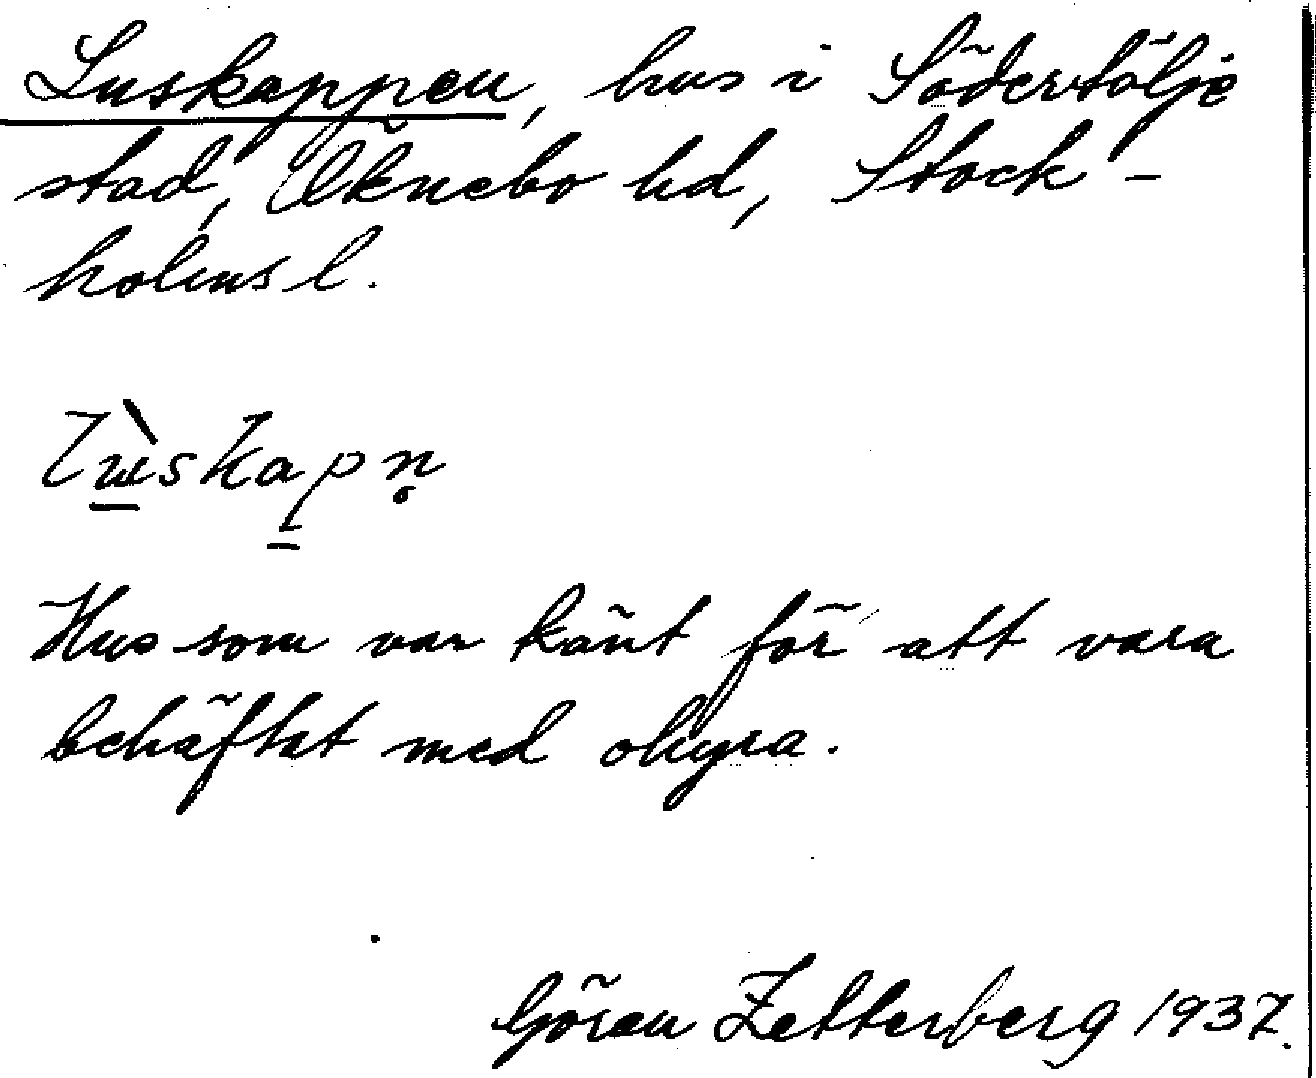 Luskappen, hus i Södertälje
stad, Öknebo hd, Stock-
holms l.
Hus som var känt för att vara
behäftat med ohyra.
Göran Zetterberg 1937.